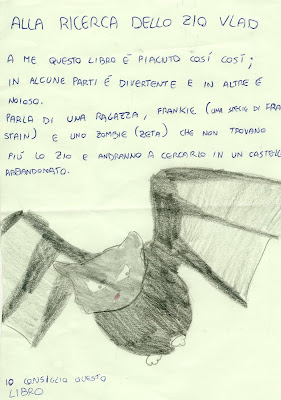 ALLA RICERCA DELLO ZIO VLAD
A ME QUESTO LIBRO È PIACIUTO COSÍ COSÍ;
IN ALCUNE PARTI È DIVERTENTE E IN ALTRE È
NOIOSO.
PARLA DI UNA RAGAZZA, FRANKIE (UNA SPECIE DI FRA
STAIN) E UNO ZOMBIE (ZETA) CHE NON TROVANO
PIÚ LO ZIO E ANDRANNO A CERCARLO IN UN CASTELL
ABBANDONATO.
IO CONSIGLIO QUESTO
LIBRO